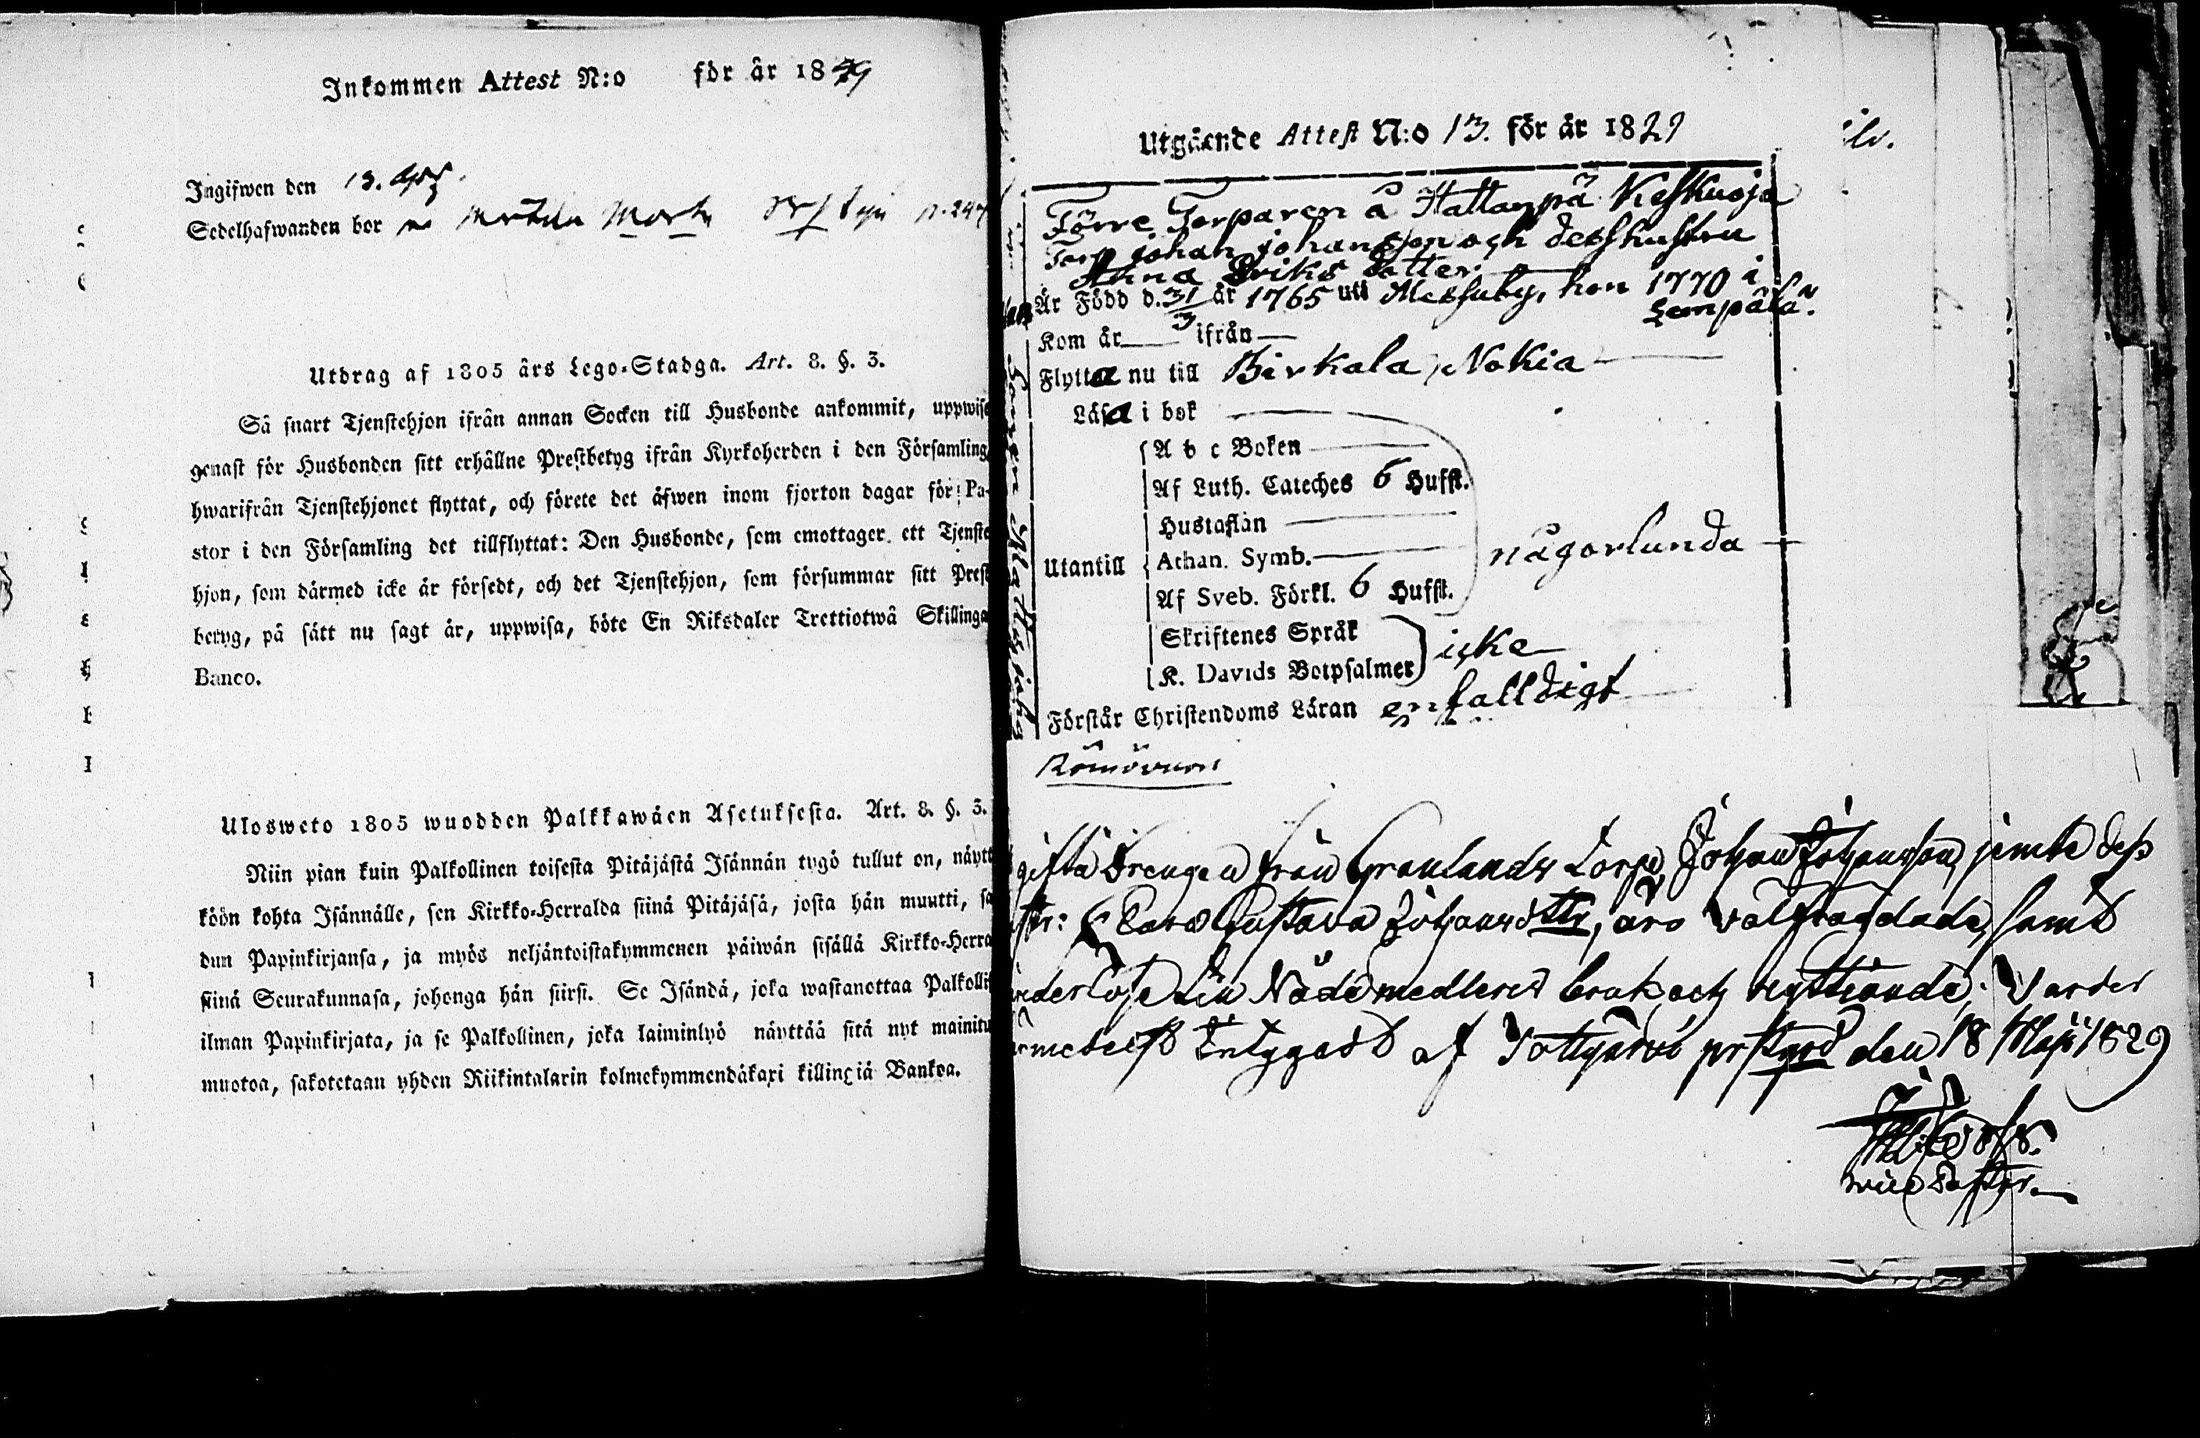 Inkommen Attest N:o för år 1829
Ingifwen den 13.
Sedelhafwanden bor
Utdrag af 1805 års Lego-Stadga. Art. 8. §. 3.
Så snart Tjenstehjon ifrån annan Socken till Husbonde ankommit, uppwise
genast för Husbonden sitt erhållne Prestbetyg ifrån Kyrkoherden i den Församling
hwarifrån Tjenstehjonet flyttat, och förete det äfwen inom fjorton dagar för Pa-
stor i den Församling det tillflyttat: Den Husbonde, som emottager ett Tjenste
hjon, som därmed icke är försedt, och det Tjenstehjon, som försummar sitt Prest
betyg, på sätt nu sagt är, uppwisa, böte En Riksdaler Trettiotwå Skillinga
Banco.
Ulosweto 1805 wuodden Palkkawäen Asetuksesta. Art. 8. §. 3.
Niin pian kuin Palkollinen toisesta Pitäjästä Isännän tygö tullut on, näytt
köön kohta Isännälle, sen Kirkko-Herralda siinä Pitäjäsä, josta hän muutti, sa
dun Papinkirjansa, ja myös neljäntoistakymmenen päiwän sisällä Kirkko-Herra
siinä Seurakunnasa, johonga hän siirsi. Se Isändä, joka wastanottaa Palkollis
ilman Papinkirjata, ja se Palkollinen, joka laiminlyö näyttää sitä nyt mainitu
muotoa, sakotetaan yhden Riikintalarin kolmekymmendäkaxi killingiä Bankoa.
Utgående Attest N:o 13. för år 1829
Förre Torparen å Hattanpä Keskuoja
Torp Johan Johansson och dess hustru
Anna Eriks dotter
Är Född d. 31/3 år 1765 uti Messuby, hon 1770 i
Lempälä.
Kom år ifrån
Flytta nu till Birkala, Nokia
Läsa i bok
A b c Boken
Af Luth. Cateches 6 Hufst.
Hustaflan
Utantill Athan. Symb. någorlunda
Af Sveb. Förkl. 6 Hufst.
Skriftenes Språk
K. Davids Botpsalmer icke
Förstår Christendoms Läran enfalldigt
gifta Drengen från Granlands Torp, Johan Johansson, jemte dess
Gustava Johansdttr, äro välfrägdade, samt
Nådemedlens bruk och nyttiande. Varder
Intygadt af Tottijärvi prstgrd den 18 Maji 1829
vice Pastor.